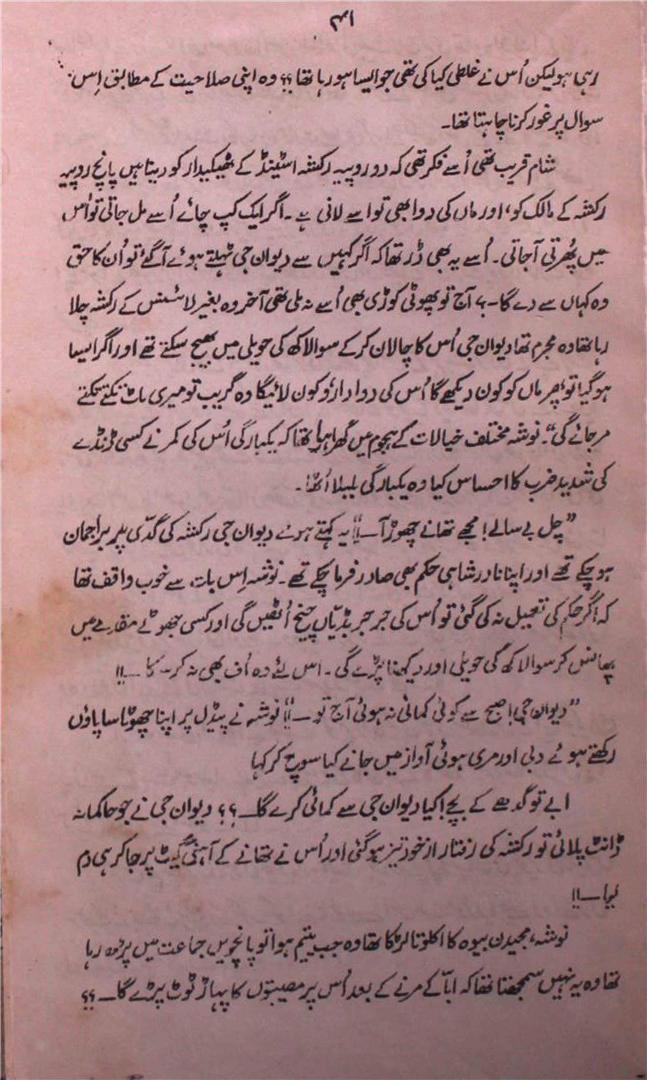 ۴۱
رہی ہو لیکن اُس نے غلطی کیا کی تھی جو ایسا ہو رہا تھا ؟؟ وہ اپنی صلاحیت کے مطابق اِس
سوال پر غور کرنا چاہتا تھا۔
شام قریب تھی اُسے فکر تھی کہ دو روپیہ رکشہ اسٹینڈ کے ٹھیکیدار کو دینا ہیں پانچ روپیہ
رکشہ کے مالک کو، اور ماں کی دوا بھی تو اسے لانی ہے۔ اگر ایک کپ چائے اُسے مل جاتی تو اُس
میں پھُرتی آجاتی۔ اُسے یہ بھی ڈر تھا کہ اگر کہیں سے دیوان جی ٹہلتے ہوئے آگئے تو اُن کا حق
وہ کہاں سے دے گا۔؟ آج تو پھوٹی کوڑی بھی اُسے نہ ملی تھی آخر وہ بغیر لائسنس کے رکشہ چلا
رہا تھا وہ مجرم تھا دیوان جی اُس کا چالان کرکے سوا لاکھ کی حویلی میں بھیج سکتے تھے اور اگر ایسا
ہو گیا تو پھر ماں کو کون دیکھے گا اُس کی دوا دارُو کون لائیگا وہ گریب تو میری باٹ تکتے تکتے
مر جائے گی"۔ نوشہ مختلف خیالات کے ہجوم میں گھرا ہوا تھا کہ یکبارگی اُس کی کمر نے کسی ڈنڈے
کی شدید ضرب کا احساس کیا وہ یکبارگی بلبلا اُٹھا۔
"چل بے سالے! مجھے تھانے چھوڑ آ—!!" یہ کہتے ہوئے دیوان جی رکشہ کی گدّی پر براجمان
ہو چکے تھے اور اپنا نادر شاہی حکم بھی صادر فرما چکے تھے۔ نوشہ اِس بات سے خوب واقف تھا
کہ اگر حکم کی تعمیل نہ کی گئی تو اُس کی جرجر ہڈیاں چیخ اُٹھیں گی اور کسی جھوٹے مقدمے میں
پھانس کر سوا لاکھ کی حویلی اور دیکھنا پڑے گی۔ اس لئے وہ اُف بھی نہ کر سکا—!!
"دیوان جی! صبح سے کوئی کمائی نہ ہوئی آج تو—!!" نوشہ نے پیڈل پر اپنا چھوٹا سا پاؤں
رکھتے ہوئے دبی اور مری ہوئی آواز میں جانے کیا سوچ کر کہا
ابے تو گدھے کے بچے! کیا دیوان جی سے کمائی کرے گا—؟؟ دیوان جی نے جو حاکمانہ
ڈانٹ پلائی تو رکشہ کی رفتار از خود تیز ہو گئی اور اُس نے تھانے کے آہنی گیٹ پر جا کر ہی دم
لیا—!!
نوشہ، مجیدن بیوہ کا اکلوتا لڑکا تھا وہ جب یتیم ہوا تو پانچویں جماعت میں پڑھ رہا
تھا وہ یہ نہیں سمجھتا تھا کہ ابّا کے مرنے کے بعد اُس پر مصیبتوں کا پہاڑ ٹوٹ پڑے گا—؟؟